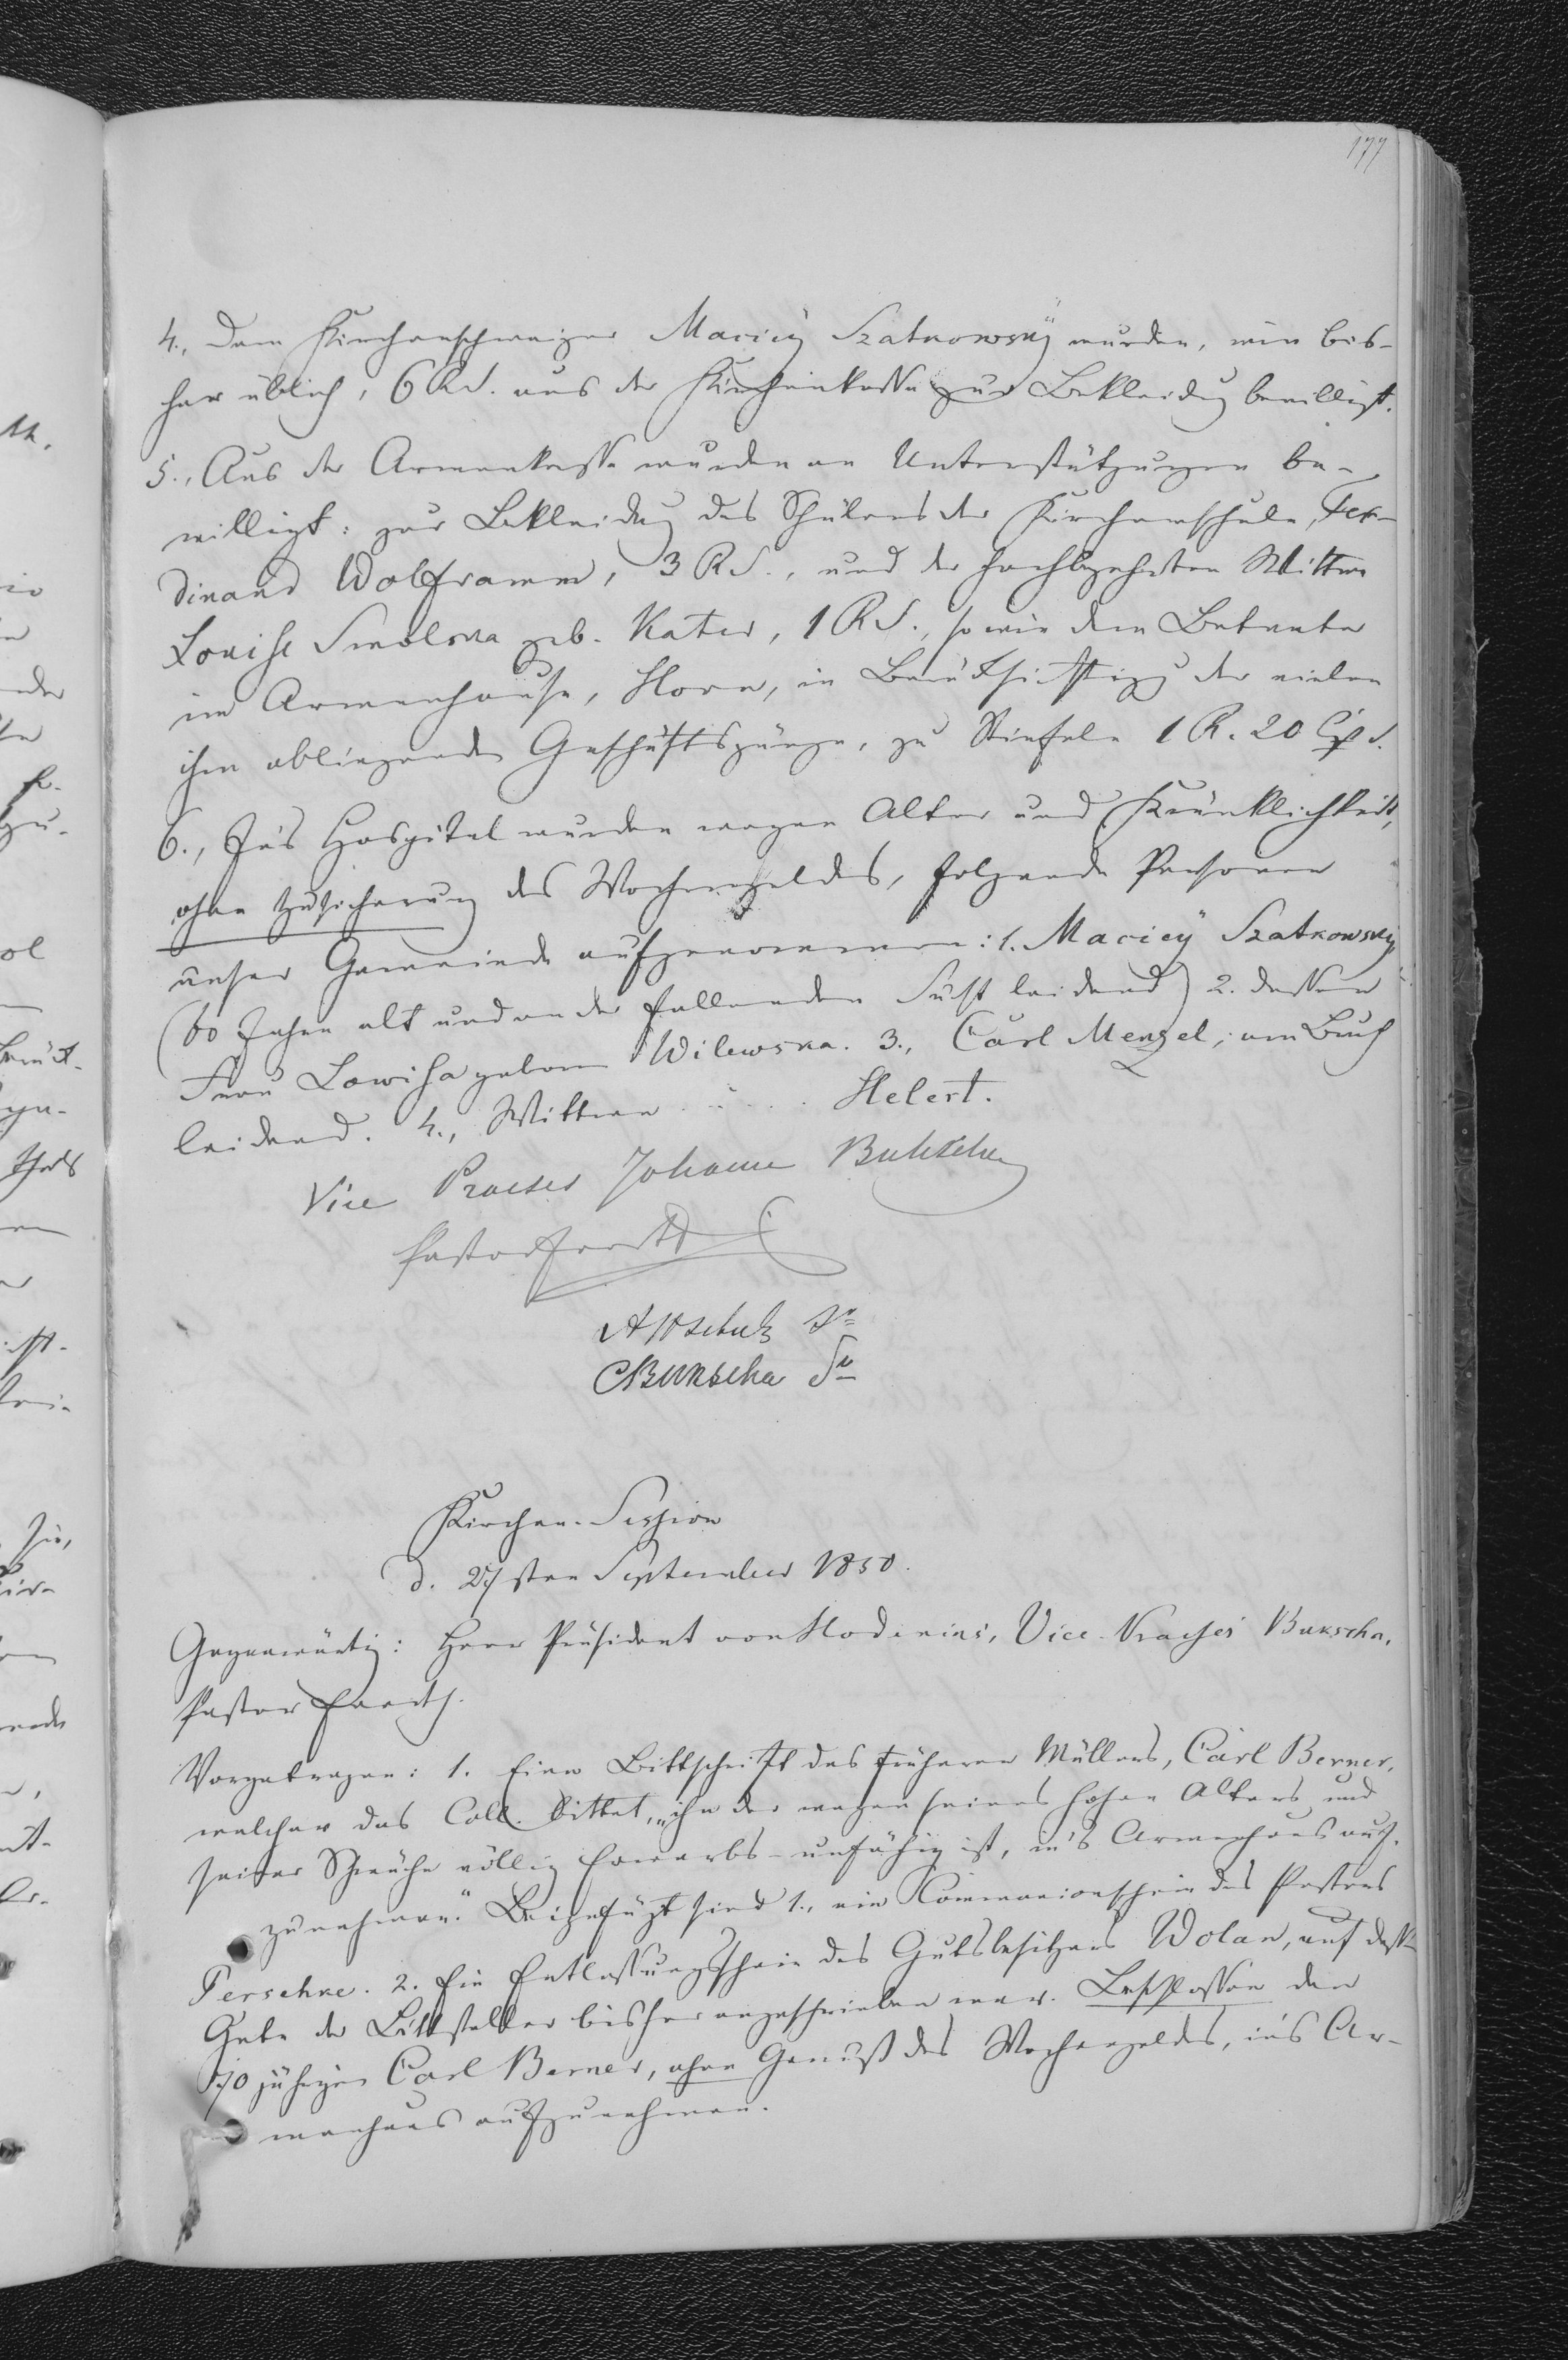 177
4., Dem Kirchenschweizer Maciey Szatkowsky wurden, wie bis-
her üblich, 6 RS. aus der Kirchenkasse zur Bekleidung bewilligt.
5., Aus der Armenkasse wurden an Unterstützungen be-
willigt: zur Bekleidung des Schülers der Kirchenschule, Fer-
dinand Wolframm, 3 RS., und der hochbejahrten Wittwe
Louise Smolska geb. Kater, 1 RS., so wie dem Beamten
im Armenhause, Horn, in Berücksichtigung der vielen
ihm obliegenden Geschäftsgänge, zu Stiefeln 1 R. 20 Cop S.
6., In's Hospital wurden wegen Alter und Kränklichkeit,
ohne Zusicherung des Wochengeldes, folgende Personen
unser Gemeinde aufgenommen: 1. Maciey Szatkowsky
(60 Jahre alt und an der fallenden Sucht leidend) 2. dessen
Frau Lowisa geborn Wilewska. 3., Carl Menzel, am Bruch
leidend. 4., Wittwe ..... Helert.
Vice Praeses Johann Bukscha
Pastor
Sr
CBukscha Sr
Kirchen-Session
d. 27sten September 1850.
Gegenwärtig: Herr Präsident von Hoderius, Vice-Praeses Bukscha,
Pastor
Vorgetragen: 1. Eine Bittschrift des früheren Müllers, Carl Berner,
welcher das Coll. bittet, „ihn der wegen seines hohen Alters und
seiner Schwäche völlig Erwerbs-unfähig ist, in's Armenhaus auf-
zunehmen." Beigefügt sind 1., ein Communionschein des Pastors
Perschke. 2. Ein Entlassungsschein des Gutsbesitzers Wolan, auf dess
Gute der Bittsteller bisher angeschrieben war. Beschlossen den
70 jährigen Carl Berner, ohne Genuß des Wochengeldes, in's Ar-
menhaus aufzunehmen.